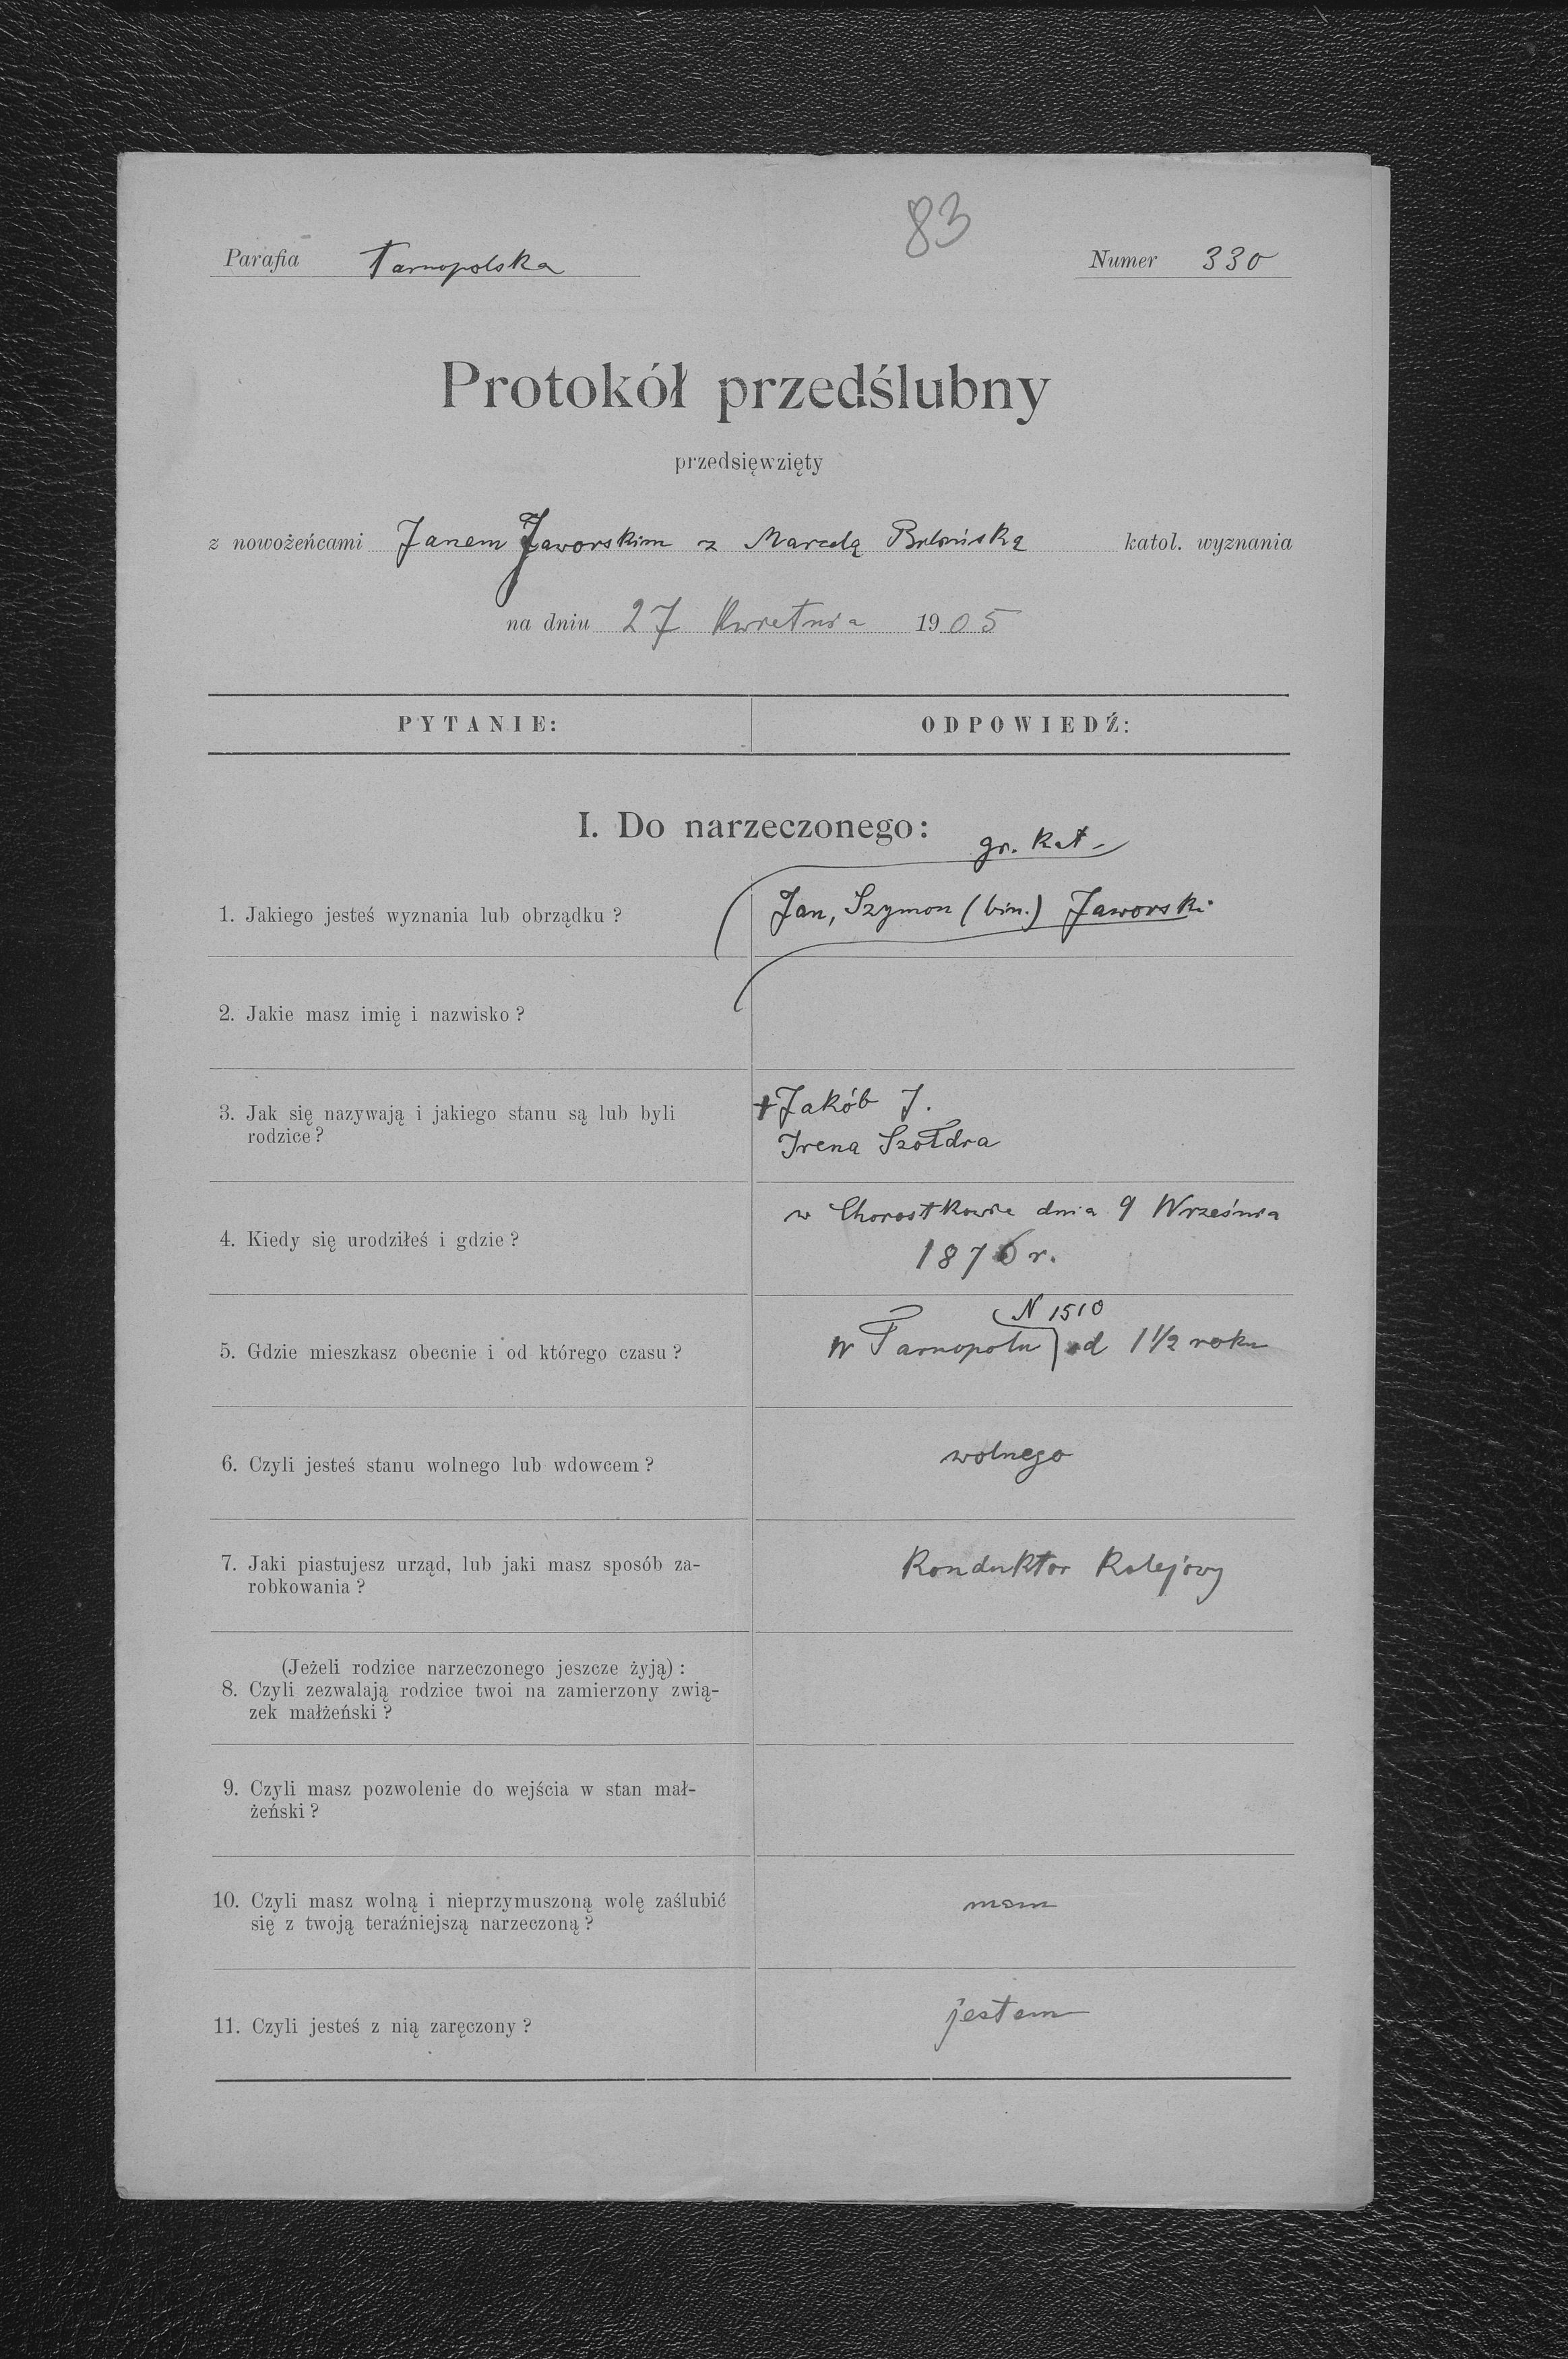 83
Parafia Tarnopolska Numer 330
Protokół przedślubny
przedsięwzięty
z nowożeńcami Janem Jaworskim z Marcelą katol. wyznania
na dniu 27 Kwietnia 1905
PYTANIE: ODPOWIEDŹ:
I. Do narzeczonego:
gr. kat.
1. Jakiego jesteś wyznania lub obrządku ? Jan, Szymon (bin.) Jaworski
2. Jakie masz imię i nazwisko ?
3. Jak się nazywają i jakiego stanu są lub byli
rodzice ?
+ Jakób J.
Irena Szołdra
4. Kiedy się urodziłeś i gdzie ?
w Chorostkowie dnia 9 Września
1876 r.
N 1510
5. Gdzie mieszkasz obecnie i od którego czasu ? w Tarnopolu od 1 1/2 roku
6. Czyli jesteś stanu wolnego lub wdowcem ? wolnego
7. Jaki piastujesz urząd, lub jaki masz sposób za-
robkowania ?
Konduktor Kolejowy
(Jeżeli rodzice narzeczonego jeszcze żyją) :
8. Czyli zezwalają rodzice twoi na zamierzony zwią-
zek małżeński ?
9. Czyli masz pozwolenie do wejścia w stan mał-
żeński ?
10. Czyli masz wolną i nieprzymuszoną wolę zaślubić
się z twoją teraźniejszą narzeczoną ?
mam
11. Czyli jesteś z nią zaręczony ? jestem